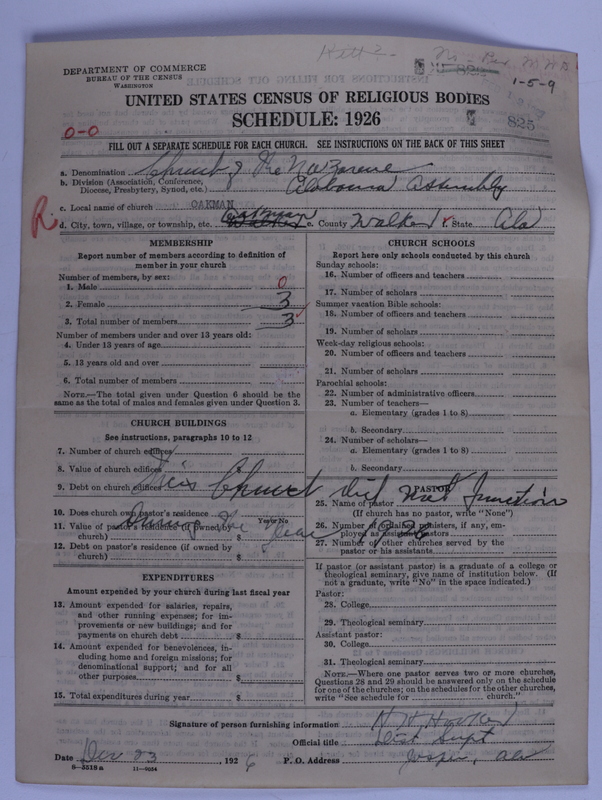 DEPARTMENT OF COMMERCE
BUREAU OF THE CENSUS
WASHINGTON
1-5-9
UNITED STATES CENSUS OF RELIGIOUS BODIES
SCHEDULE: 1926
825
0-0
FILL OUT A SEPARATE SCHEDULE FOR EACH CHURCH. SEE INSTRUCTIONS ON THE BACK OF THIS SHEET
a. Denomination Church of The Nazarene
b. Division (Association, Conference, Diocese, Presbytery, Synod, etc.) Alabama Assembly
c. Local name of church OAKMAN
R. d. City, town, village, or township, etc. Oakman e. County Walker f. State Ala
MEMBERSHIP
Report number of members according to definition of
member in your church
Number of members, by sex:
1. Male 0
2. Female 3
3. Total number of members 3
Number of members under and over 13 years old:
4. Under 13 years of age
5. 13 years old and over
6. Total number of members
NOTE.—The total given under Question 6 should be
same as the total of males and females given under Question 3.
CHURCH BUILDINGS
See instructions, paragraphs 10 to 12
7. Number of church edifices
8. Value of church edifices
9. Debt on church edifices
This Church did not function
During the year 1926
10. Does church own pastor's residence
Yes or No
11. Value of pastor's residence (if owned by
church) $
12. Debt on pastor's residence (if owned by
church) $
EXPENDITURES
Amount expended by your church during last fiscal year
13. Amount expended for salaries, repairs,
and other running expenses; for im-
provements or new buildings; and for
payments on church debt $
14. Amount expended for benevolences, in-
cluding home and foreign missions; for
denominational support; and for all
other purposes $
15. Total expenditures during year $
CHURCH SCHOOLS
Report here only schools conducted by this church
Sunday schools:
16. Number of officers and teachers
17. Number of scholars
Summer vacation Bible schools:
18. Number of officers and teachers
19. Number of scholars
Week-day religious schools:
20. Number of officers and teachers
21. Number of scholars
Parochial schools:
22. Number of administrative officers
23. Number of teachers—
a. Elementary (grades 1 to 8)
b. Secondary
24. Number of scholars—
a. Elementary (grades 1 to 8)
b. Secondary
PASTOR
25. Name of pastor
(If church has no pastor, write "None")
26. Number of ordained ministers, if any, em-
ployed as assistant pastors
27. Number of other churches served by the
pastor or his assistants
If pastor (or assistant pastor) is a graduate of a college or
theological seminary, give name of institution below. (If
not a graduate, write "No" in the space indicated.)
Pastor:
28. College
29. Theological seminary
Assistant pastor:
30. College
31. Theological seminary
NOTE.—Where one pastor serves two or more churches,
Questions 28 and 29 should be answered only on the schedule
for one of the churches; on the schedules for the other churches,
write "See schedule for church."
Signature of person furnishing information H. H. Hooker
Official title Dist Supt
Date Dec 23, 1926 P. O. Address Jasper, Ala
8-3518a 11-9034